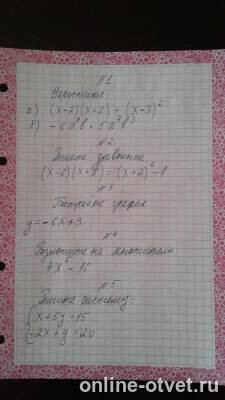 №1
Упростите:
а) (x-2)(x+2) + (x-3)²
б) -6a⁴b · 5a²b³
№2
Решите уравнение
(x-6)(x+8) = (x+2)² - 8
№3
Постройте график
y = -6x+9
№4
Разложите на множители:
4x² - 16
№5
Решите систему:
x+5y=15
-2x+y=20
online-otvet.ru